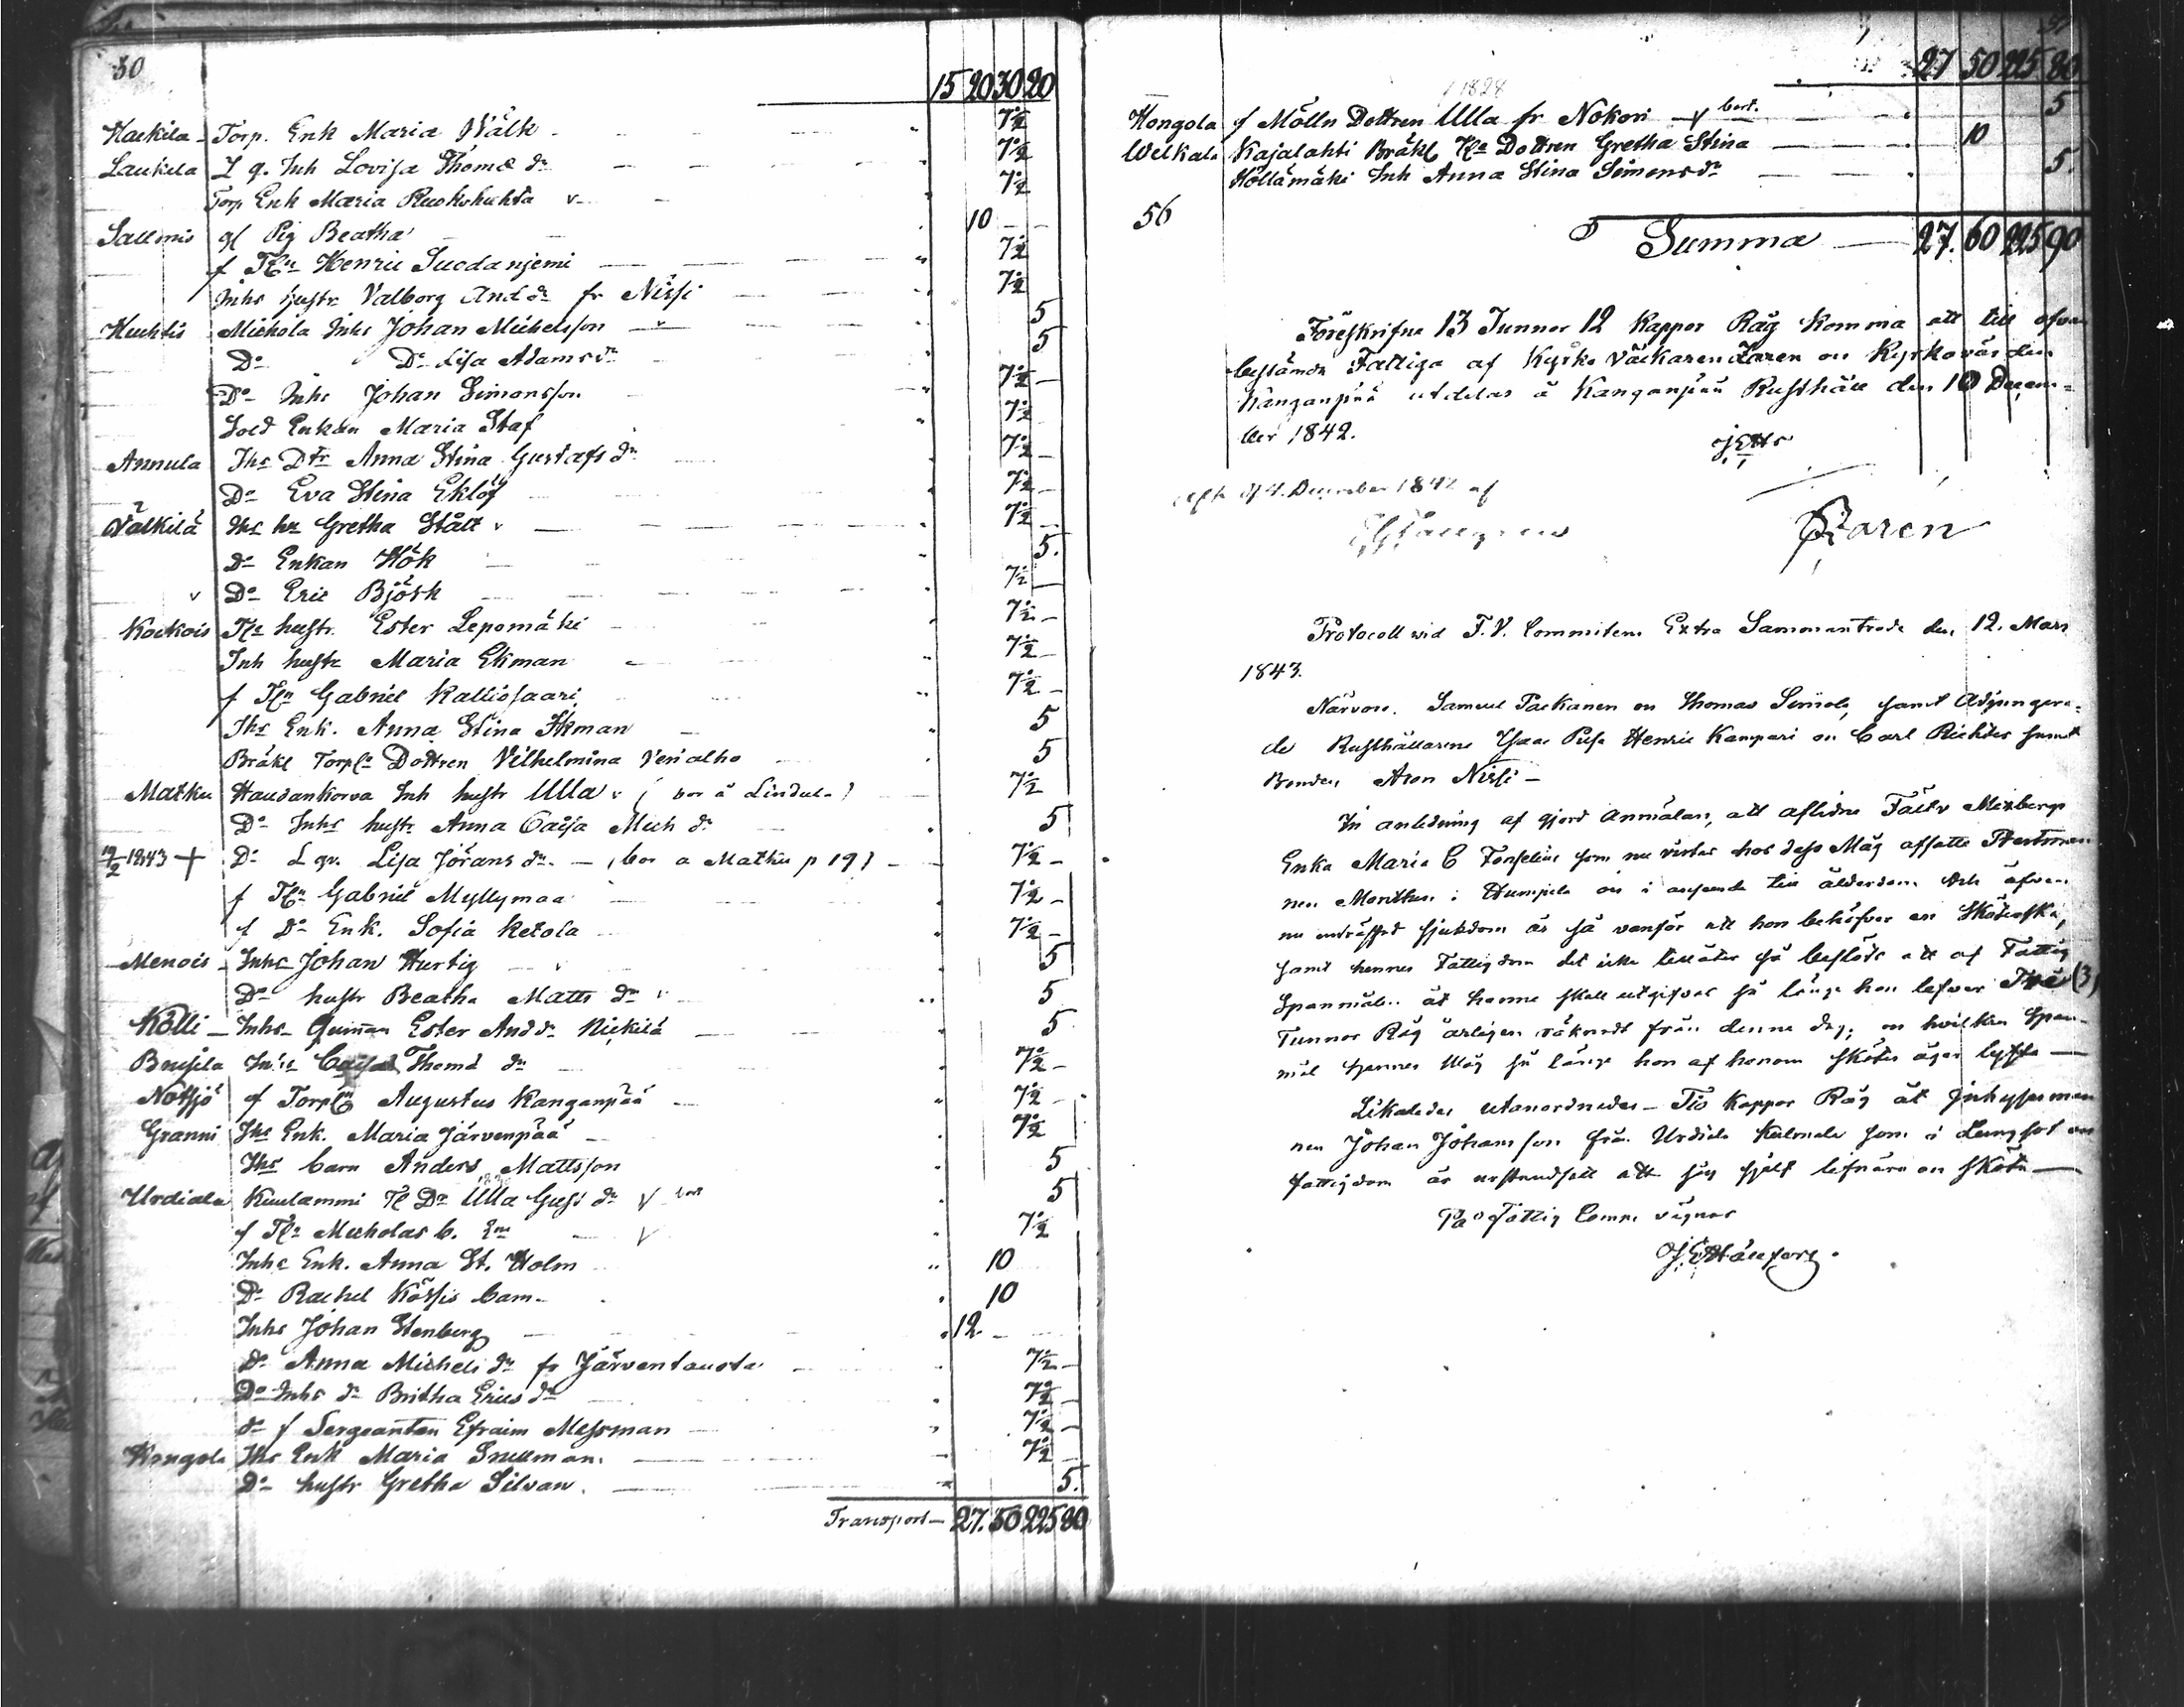 30
15 20 30 20
Haekila Torp. Enk Maria Välk 7½
Laukila I q. Inh Lovisa Thomæ dr 7½
Torp Enk Maria Ruokohuhta v 7½
Sallmis gl Pig Beatha 10
f Tlr Henric Suodanjemi 7½
Inhs hustr Valborg And dr fr Nissi 7½
Huhtis Mickola Inhs Johan Michelsson v 5
Do Do Lisa Adamsdr 5
Do Inhs Johan Simonsson 7½
Sold Enkan Maria Staf 7½
Annula Ihs Dtr Anna Stina Gustafsdr 7½
Do Eva Stina Eklöf 7½
Välkilä Ihs hu Gretha Stält v 7½
Do Enkan Hök 5
v Do Eric Björk 7½
Kockois hustr Ester Lepomäki 7½
Inh hustr Maria Ekman 7½
f Gabriel Kalliosaari 7½
Ihs Enk. Anna Stina Ikman 5
Bräkl Dottren Vilhelmina Verialho 5
Matku Haudankorva Inh hustr Ulla v (bor å Lindula) 7½
Do Inhs hustr Anna Caisa Mich dr 5
19/2 1843 + Do L gv. Lisa Jöransdr (bor a Matku p 19) 7½
f Gabriel Myllymaa 7½
f Do Enk. Sofia Ketola 7½
Menois Inhs Johan Hurtig v 5
Do hustr Beatha Mattsdr v 5
Kölli Inhs Ester And dr Nickilä 5
Brusila Inhs Caisa Thomä dr 7½
Notsjö f Augustus Kanganpää 7½
Granni Ihs Enk. Maria Järvenpää 7½
Ihs barn Anders Mattsson 5
Urdiala Kuulammi Dr Ulla Gust dr v bort 5
f Micholas b. v 7½
Inhs Enk. Anna St. Holm 10
Do Rachel Kössis barn 10
Inhs Johan Stenberg 12
Do Anna Michels dr fr Järventausta 7½
Do Inhs dr Britha Erics dr 7½
do f Sergeanten Efraim Messman 7½
Hongola Ihs Enk Maria Snellman 7½
Do hustr Gretha Silvan 5
Transport 27. 50 225 80
27 50 225 80
1828
Hongola f Mölln Dottren Ulla fr Nokori v bort. 5
Welkala Kajalahti Bräkl Dottren Gretha Stina 10
Höllämäki Inh Anna Stina Simonsdr 5
56
Summa 27. 60 225 90
Föreskrifne 13 Tunnor 12 Kappor Råg komma att till ofvan
bestämda Fattiga af Kyrko Väckaren Zaren on Kyrkovärden
Kanganpää utdelas å Kanganpää Rusthåll den 10 Decem=
ber 1842.
4. December 1842 af
Zaren
Protocoll wid F. V. Commiten Extra Sammanträde den 12. Mars
1843.
Närvar. Samuel Packanen on Thomas Simola, samt Adjungera=
de Rusthållarene Isaac Henric Kampari on Carl Richter samt
Bonden Aron Nissi
In anledning af gjord anmälan, att aflidne Fältv Mixbergs
Enka Maria C Forselius som nu vistas hos dess Måg afsatte
nen i Humpila on i anseende till ålderdom och äfven
nu sjukdom är så vanför att hon behöfver en Sköterska,
samt hennes Fattigdom det icke tillåter så beslöts att af Fattig
Spanmåln åt henne skall utgifvas så länge hon lefver Tre (3)
Tunnor Råg årligen räknadt från denne dag; on hvilken Span=
mål hennes Måg så länge hon af honom skötes äger lyfta
Likaledes utanordnades Tio Kappor Råg åt Inhysesman
nen Johan Johansson från Urdiala som i Lungsot on
fattigdom är urståndsatt att sig sjelf lifnära on sköta
På Fattig Comm. vägnar